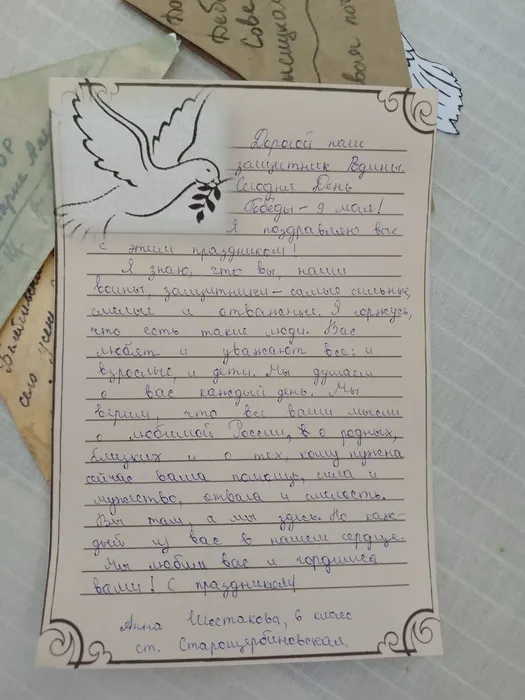 До
Деб
Сове
нсиской
воля поч
Дорогой наш
защитник Родины
Сегодня День
Победы - 9 мая!
Я поздравляю вас
с этим праздником!
Я знаю, что вы, наши
воины, защитники - самые сильные,
смелые и отважные. Я горжусь,
что есть такие люди. Вас
любят и уважают все: и
взрослые, и дети. Мы думаем
о вас каждый день. Мы
верим, что все ваши мысли
о любимой России, о родных,
близких и о тех, кому нужна
сейчас ваша помощь, сила и
мужество, отвага и смелость.
Вы там, а мы здесь. Но каж-
дый из вас в нашем сердце.
Мы любим вас и гордимся
вами! С праздником!
Анна Шестакова, 6 класс
ст. Старощербиновская.
село